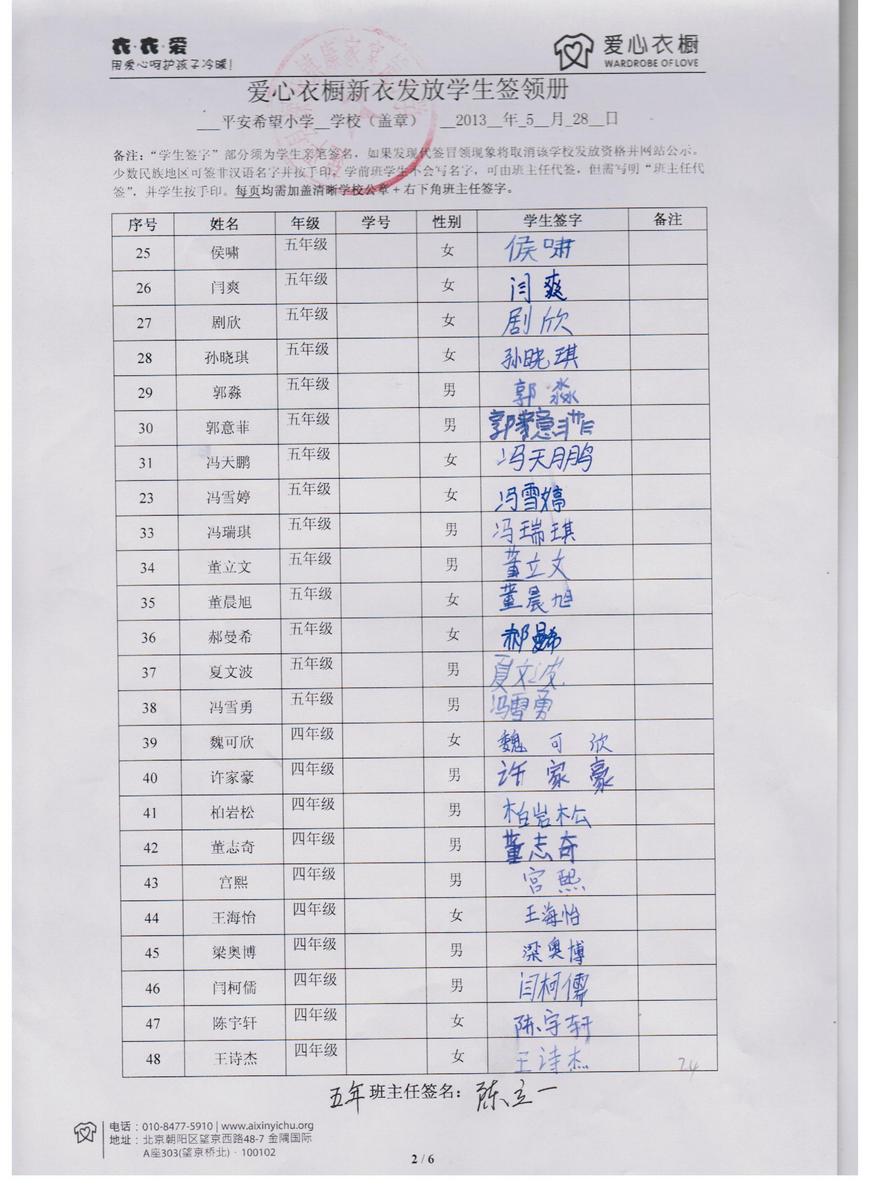 衣·衣·爱
用爱心呵护孩子冷暖!
爱心衣橱
WARDROBE OF LOVE
爱心衣橱新衣发放学生签领册
___平安希望小学__学校（盖章） __2013__年_5__月_28__日
备注：“学生签字”部分须为学生亲笔签名，如果发现代签冒领现象将取消该学校发放资格并网站公示。
少数民族地区可签非汉语名字并按手印。学前班学生不会写名字，可由班主任代签，但需写明“班主任代
签”，并学生按手印。每页均需加盖清晰学校公章+右下角班主任签字。
序号 姓名 年级 学号 性别 学生签字 备注
25 侯啸 五年级 女 侯啸
26 闫爽 五年级 女 闫爽
27 剧欣 五年级 女 剧欣
28 孙晓琪 五年级 女 孙晓琪
29 郭淼 五年级 男 郭淼
30 郭意菲 五年级 男 郭意菲
31 冯天鹏 五年级 女 冯天鹏
23 冯雪婷 五年级 女 冯雪婷
33 冯瑞琪 五年级 男 冯瑞琪
34 董立文 五年级 男 董立文
35 董晨旭 五年级 女 董晨旭
36 郝曼希 五年级 女 郝曼希
37 夏文波 五年级 男 夏文波
38 冯雪勇 五年级 男 冯雪勇
39 魏可欣 四年级 女 魏可欣
40 许家豪 四年级 男 许家豪
41 柏岩松 四年级 男 柏岩松
42 董志奇 四年级 男 董志奇
43 宫熙 四年级 男 宫熙
44 王海怡 四年级 女 王海怡
45 梁奥博 四年级 男 梁奥博
46 闫柯儒 四年级 男 闫柯儒
47 陈宇轩 四年级 女 陈宇轩
48 王诗杰 四年级 女 王诗杰 24
五年班主任签名：陈立一
电话：010-8477-5910 | www.aixinyichu.org
地址：北京朝阳区望京西路48-7 金隅国际
A座303(望京桥北)·100102
2 / 6